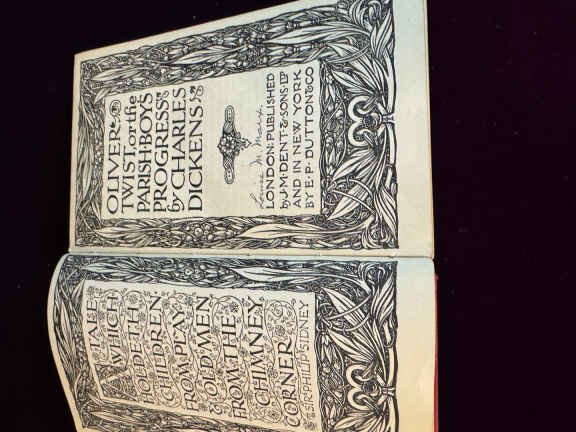 A TALE
WHICH
HOLDETH
CHILDREN
FROM PLAY
& OLD MEN
FROM THE
CHIMNEY
CORNER
SIR PHILIP SIDNEY
OLIVER
TWIST, or the
PARISH-BOY'S
PROGRESS
by CHARLES
DICKENS
LONDON: PUBLISHED
by J. M. DENT & SONS LTD
AND IN NEW YORK
BY E. P. DUTTON & CO